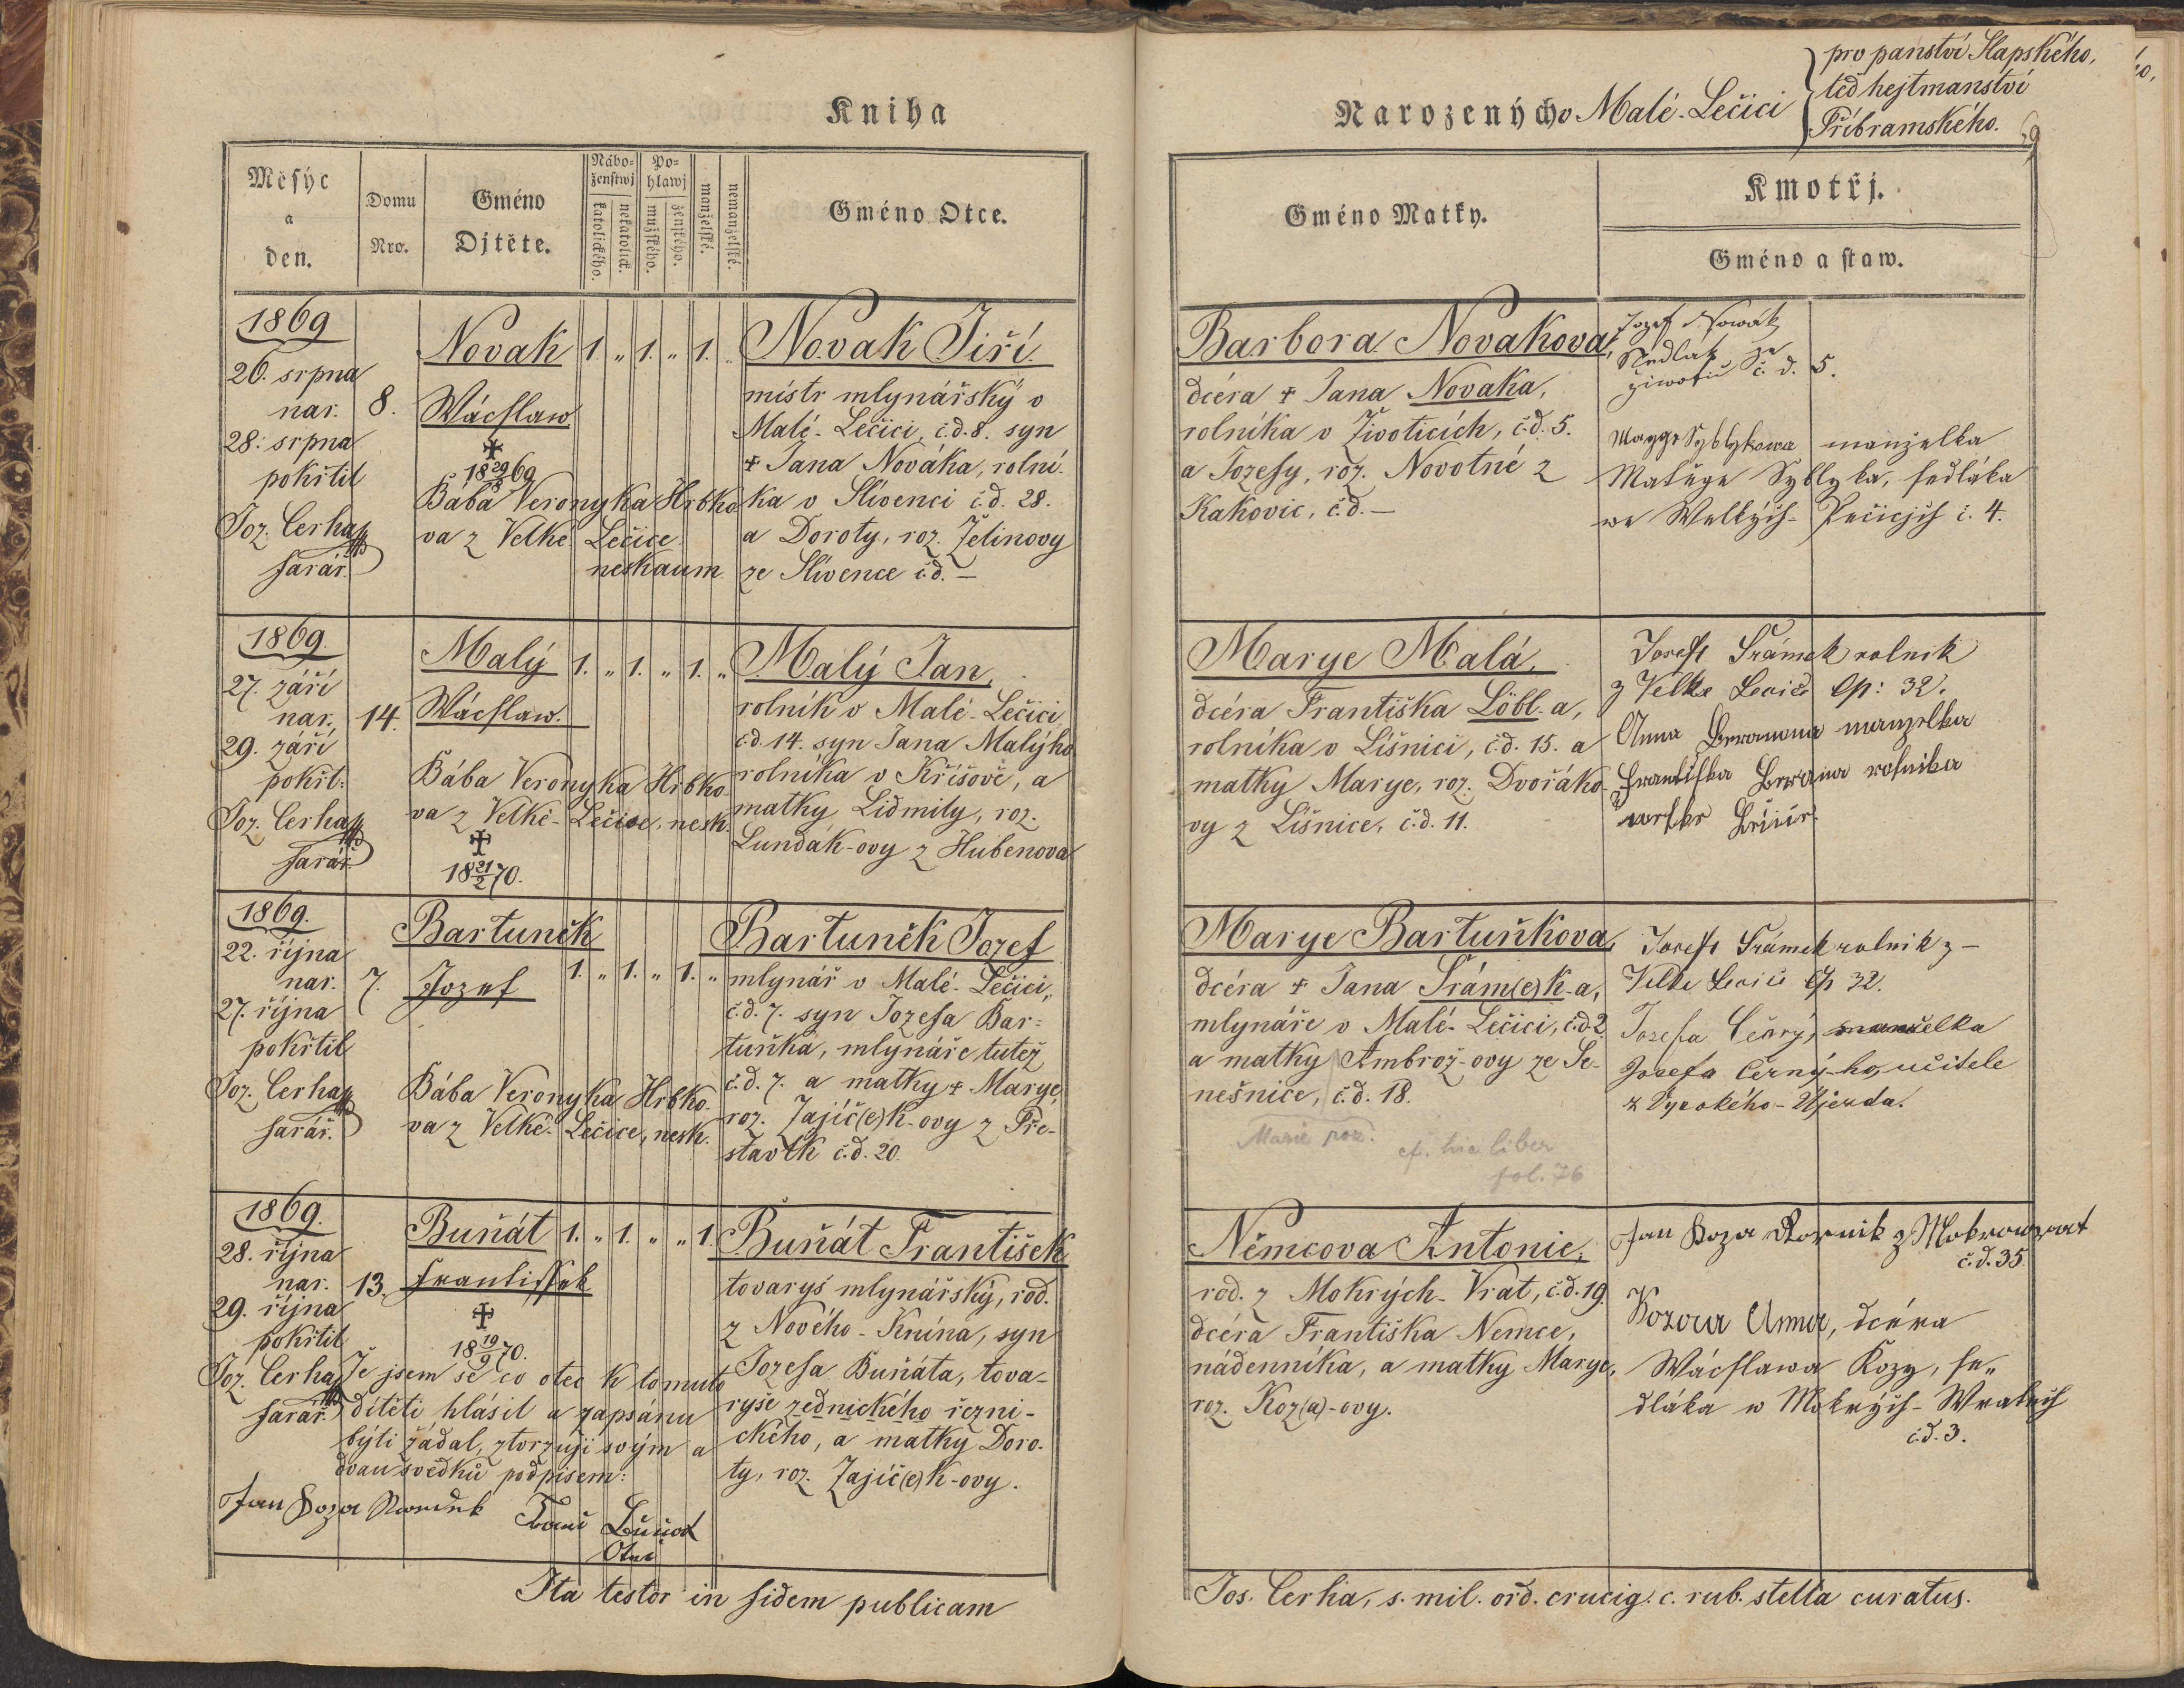 Kniha
Měsýc
a
den.
Domu
Nro.
Gméno
Djtěte.
Nábo=
ženstwj
Po=
hlawj
katolického.
nekatolick.
mužského.
ženského.
manželské.
nemanželské.
Gméno Otce.
1869
26. srpna
nar.
28. srpna
pokřtil
Joz. Cerha
farář.
8.
Novak
Wácslaw.
18 29/8 69
Bába Veronyka Hrbko
va z Velké Lečice
neskaum.
1. „ 1. „ 1. „
Novak Jiří.
mistr mlynářský v
Malé-Lečici, č.d. 8. syn
+ Jana Nováka, rolní-
ka v Slivenci č.d. 28.
a Doroty, roz. Želinovy
ze Slivence č.d. —
1869.
27. září
nar.
29. září
pokřt:
Joz. Cerha
farář.
14.
Malý
Wácslaw.
Bába Veronyka Hrbko-
va z Velké-Lečice, nesk.
18 21/2 70.
1. „ 1. „ 1. „
Malý Jan,
rolník v Malé-Lečici
č.d. 14. syn Jana Malýho
rolníka v Křišově, a
matky Lidmily, roz.
Lundák-ovy z Hubenova
1869.
22. října
nar.
27. října
pokřtil
Joz. Cerha
farář.
7.
Bartuněk
Jozef
Bába Veronyka Hrbko-
va z Velké-Lečice, nesk.
1. „ 1. „ 1. „
Bartuněk Jozef
mlynář v Malé-Lečici,
č.d. 7. syn Jozefa Bar=
tuňka, mlynáře tutež
č.d. 7. a matky + Marye,
roz. Zajíč(e)k-ovy z Pře-
stavlk č.d. 20.
1869.
28. října
nar.
29. října
pokřtil
Joz. Cerha
farář.
13.
Buňát
Frantissek
18 19/9 70.
1. „ 1. „ „ 1.
Buňát František
tovaryš mlynářský, rod.
z Nového-Knína, syn
Jozefa Buňáta, tova-
ryše zednického řezni-
ckého, a matky Doro-
ty, roz. Zajíč(e)k-ovy.
Že jsem se co otec k tomuto
dítěti hlásil a zapsánu
býti žádal, ztvrzuji svým a
dvau svědků podpisem:
Jan Koza
Otec
Ita testor in fidem publicam
Narozených v Malé-Lečici
pro panství Slapského,
teď hejtmanství
Příbramského.
69
Gméno Matky.
Kmotřj.
Gméno a staw.
Barbora Novakova,
dcéra + Jana Novaka,
rolníka v Životicích, č.d. 5.
a Jozefy, roz. Novotné z
Kakovic, č.d. —
Jozef Nowák,
Sedlák ze
živothic č. d. 5.
manželka
Matěge Syblyka, sedláka
we Welkých- Pečicjch č. 4.
Marye Malá,
dcéra Františka Löbl-a,
rolníka v Líšnici, č.d. 15. a
matky Marye, roz. Dvořáko-
vy z Líšnice, č.d. 11.
Josef Šrámek rolnik
z Velke Lecic čp: 32.
Anna manzelka
Frantiska rolnika
Marye Bartuňkova,
dcéra + Jana Šrám(e)k-a,
mlynáře v Malé-Lečici, č.d. 2.
a matky Ambrož-ovy ze Se-
nešnice, č.d. 18.
Marie roz.
cf. hic liber
fol. 76
Josef Šrámek rolnik z-
Velke Lecic čp 32.
Josefa Černý, manželka
Josefa Černý-ho, učitele
z Vysokého-Újezda.
Němcova Antonie,
rod. z Mokrých-Vrat, č.d. 19.
dcéra Františka Nemce,
nádenníka, a matky Marye,
roz. Koz(a)-ovy.
Jan Koza z Mokrouzwat
č.d. 35.
Kozova Anna, dcéra
Wácslawa Kozy, se„
dláka w Mokrých-Wratech
č.d. 3.
Jos. Cerha, s. mil. ord. crucig. c. rub. stella curatus.